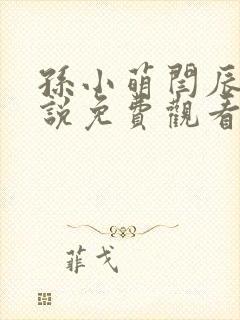 孫小萌閆辰
說免費觀看
菲戈